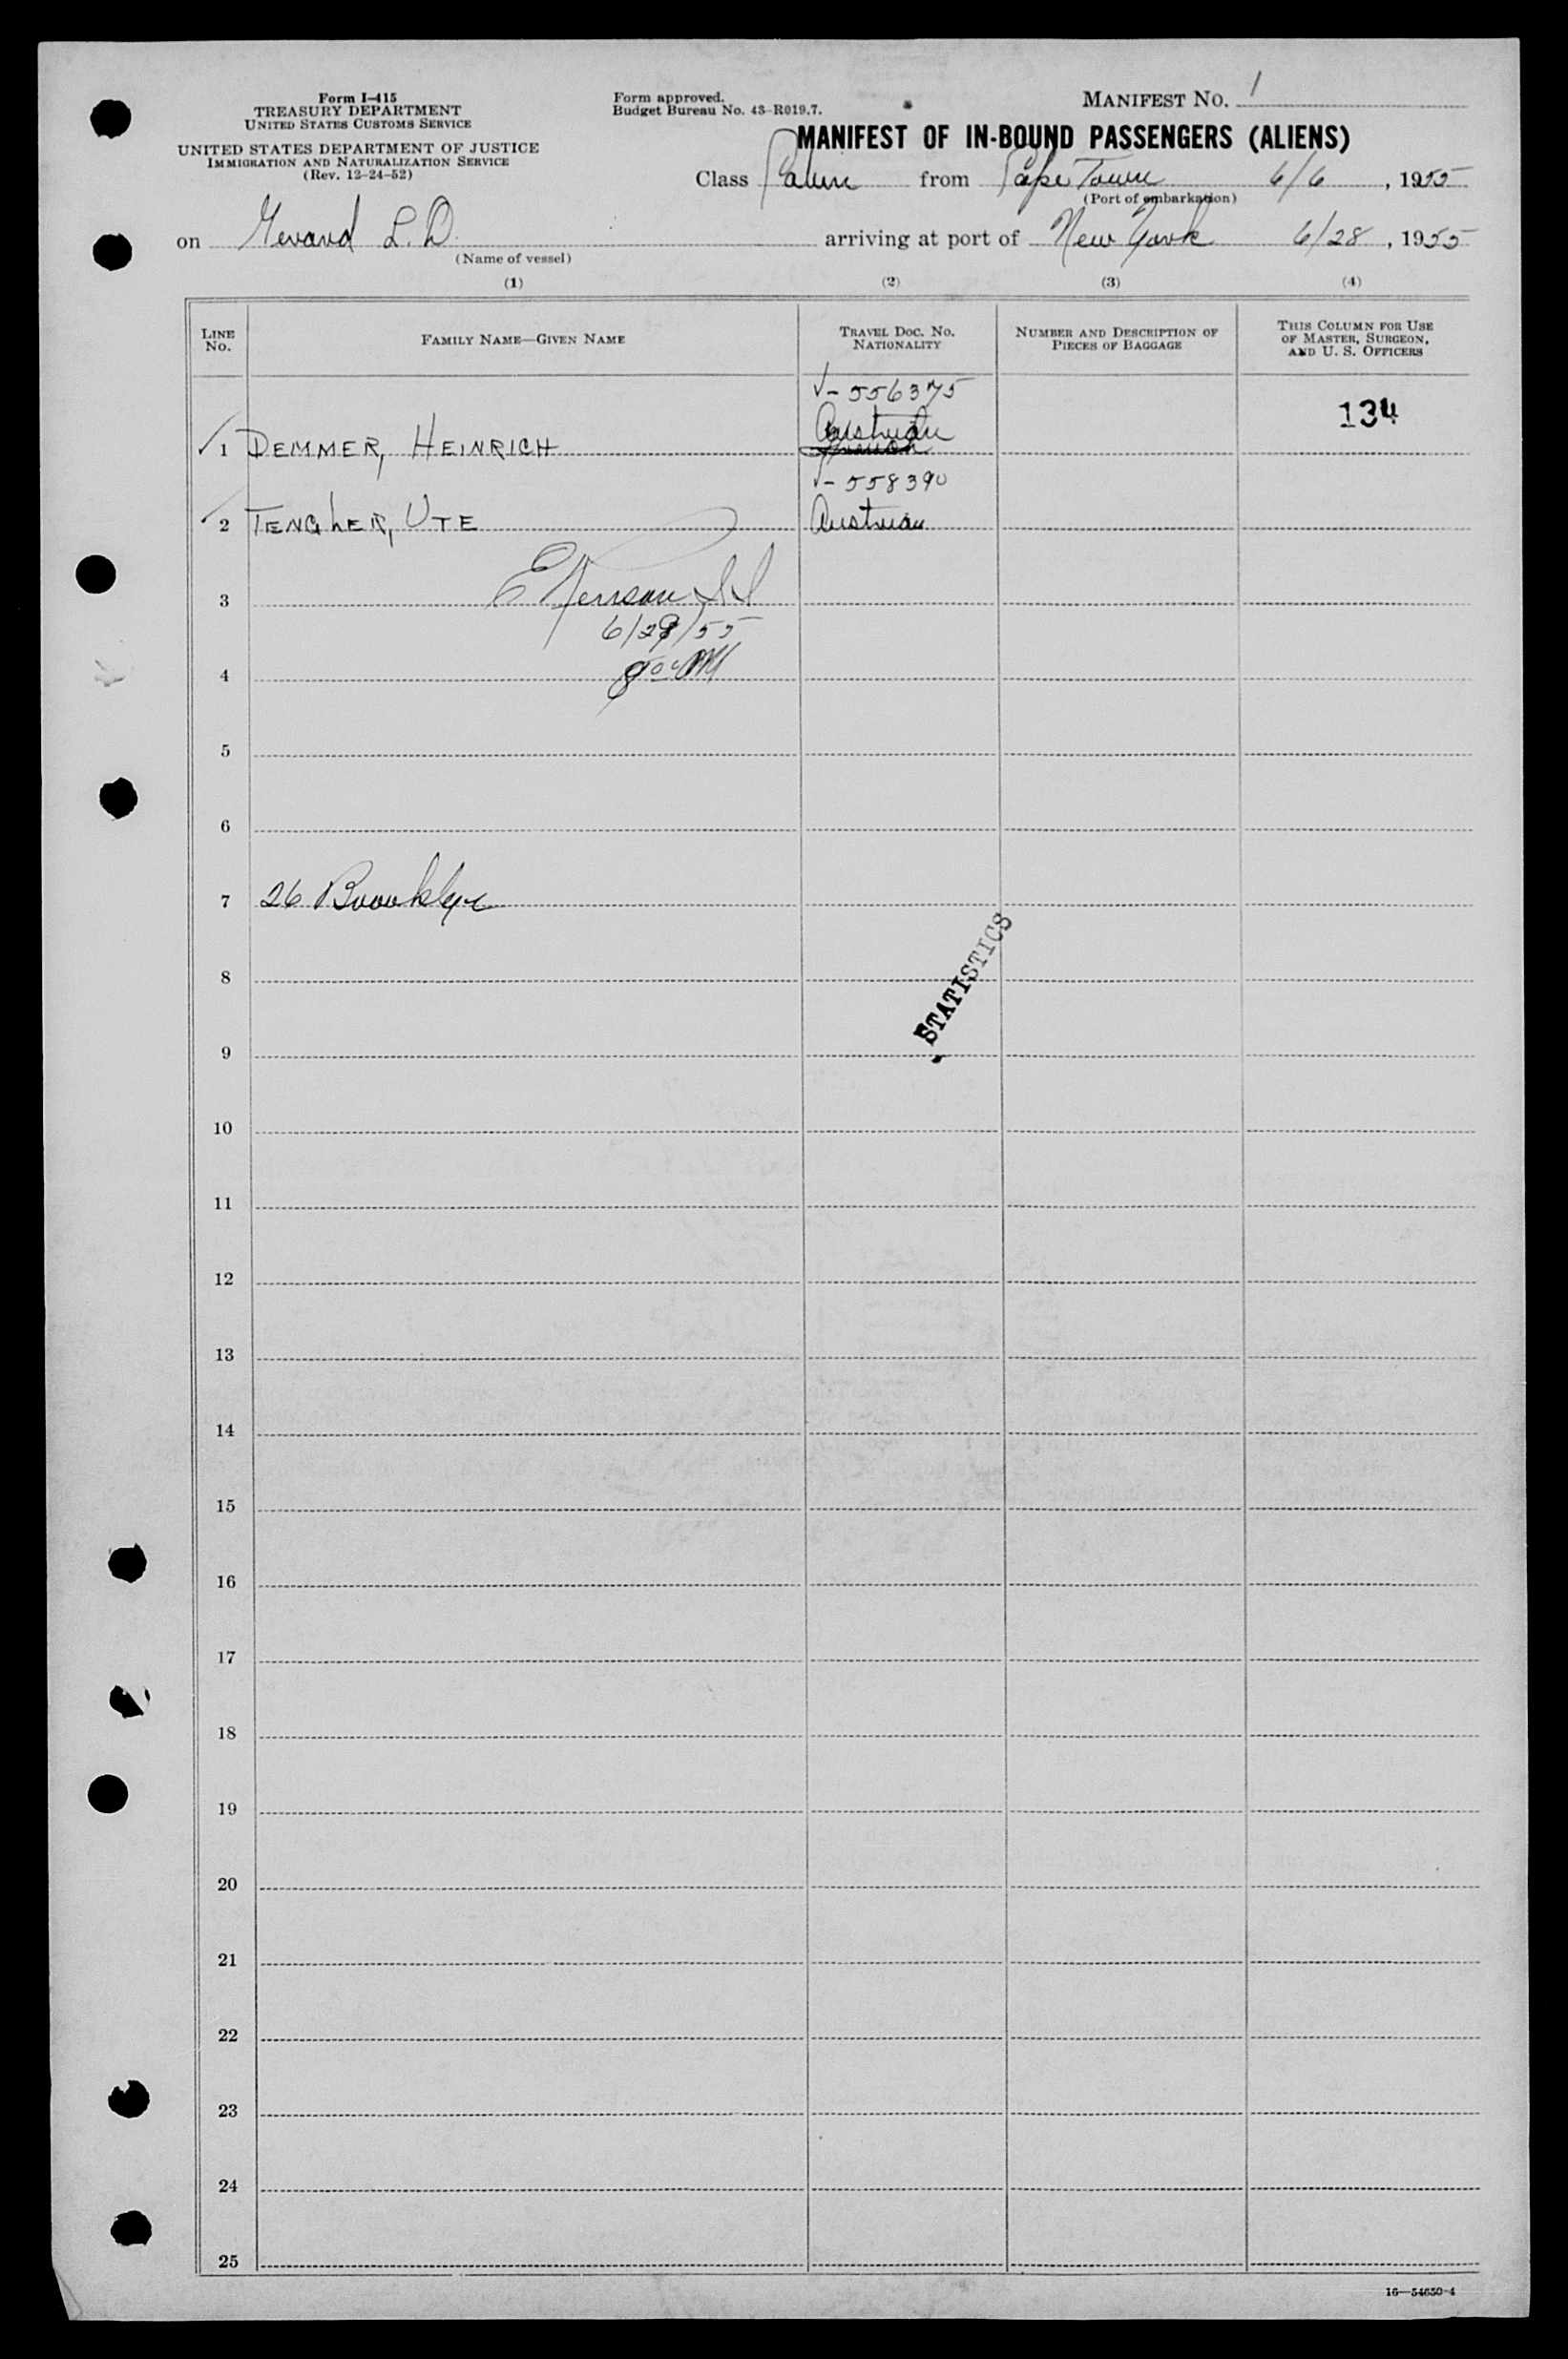 Form I-415
TREASURY DEPARTMENT
UNITED STATES CUSTOMS SERVICE
UNITED STATES DEPARTMENT OF JUSTICE
IMMIGRATION AND NATURALIZATION SERVICE
(Rev. 12-24-52)
Form approved.
Budget Bureau No. 43-R019.7.
MANIFEST NO. 1
MANIFEST OF IN-BOUND PASSENGERS (ALIENS)
Class Cabin from Cape Town 6/6, 1955
(Port of embarkation)
on Gerard L.D. arriving at port of New York 6/28, 1955
(Name of vessel)
(1) (2) (3) (4)
LINE NO. FAMILY NAME—GIVEN NAME TRAVEL DOC. NO. NATIONALITY NUMBER AND DESCRIPTION OF PIECES OF BAGGAGE THIS COLUMN FOR USE OF MASTER, SURGEON, AND U. S. OFFICERS
V-556375
134
Austrian
1 DEMMER, HEINRICH
V-558390
2 TENGLER, UTE Austrian
3
6/29/55
4
5
6
7 26 Brooklyn
8
STATISTICS
9
10
11
12
13
14
15
16
17
18
19
20
21
22
23
24
25
16—54650-4